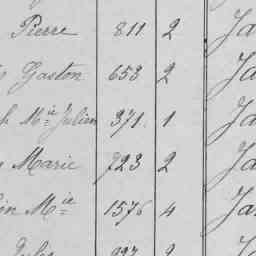 Pierre 811 2 Ja
Gaston 653 2 Ja
h Mie Julien 371 1 Ja
Marie 723 2 Ja
in Mie 1576 4 Ja
Jules 2